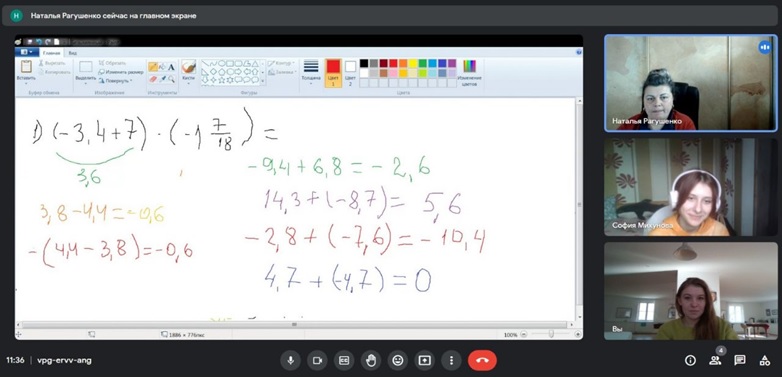 Н Наталья Рагушенко сейчас на главном экране
Главная Вид
Вставить Вырезать Копировать
Буфер обмена
Выделить Обрезать Изменить размер Повернуть
Изображение
Инструменты
Кисти
Фигуры
Контур
Заливка
Толщина
Цвет 1
Цвет 2
Изменение цветов
Цвета
1) (-3,4+7) · (-1 7/18) =
3,6
-9,4+6,8=-2,6
14,3+(-8,7)= 5,6
3,8-4,4=-0,6
-(4,4-3,8)=-0,6
-2,8+(-7,6)=-10,4
4,7+(-4,7)=0
100%
Наталья Рагушенко
София Михунова
Вы
11:36 vpg-ervv-ang
4